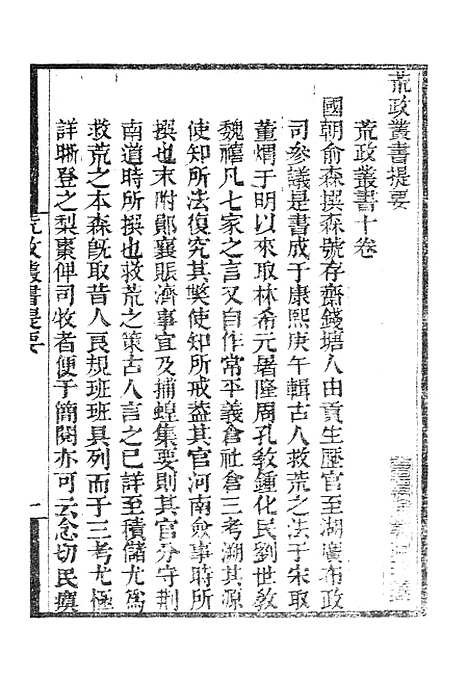 荒政叢書提要
荒政叢書十卷
國朝俞森撰森號存齋錢塘人由貢生歷官至湖廣布政
司參議是書成于康熙庚午輯古人救荒之法于宋取
董煟于明以來取林希元屠隆周孔教鍾化民劉世教
魏禧凡七家之言又自作常平義倉社倉三考溯其源
使知所法復究其弊使知所戒蓋其官河南僉事時所
撰也末附鄖襄賑濟事宜及捕蝗集要則其官分守荆
南道時所撰也救荒之策古人言之已詳至積儲尤爲
救荒之本森旣取昔人良規班班具列而于三考尤極
詳晰登之梨棗俾司牧者便于簡閱亦可云念切民瘼
荒政叢書提要
一